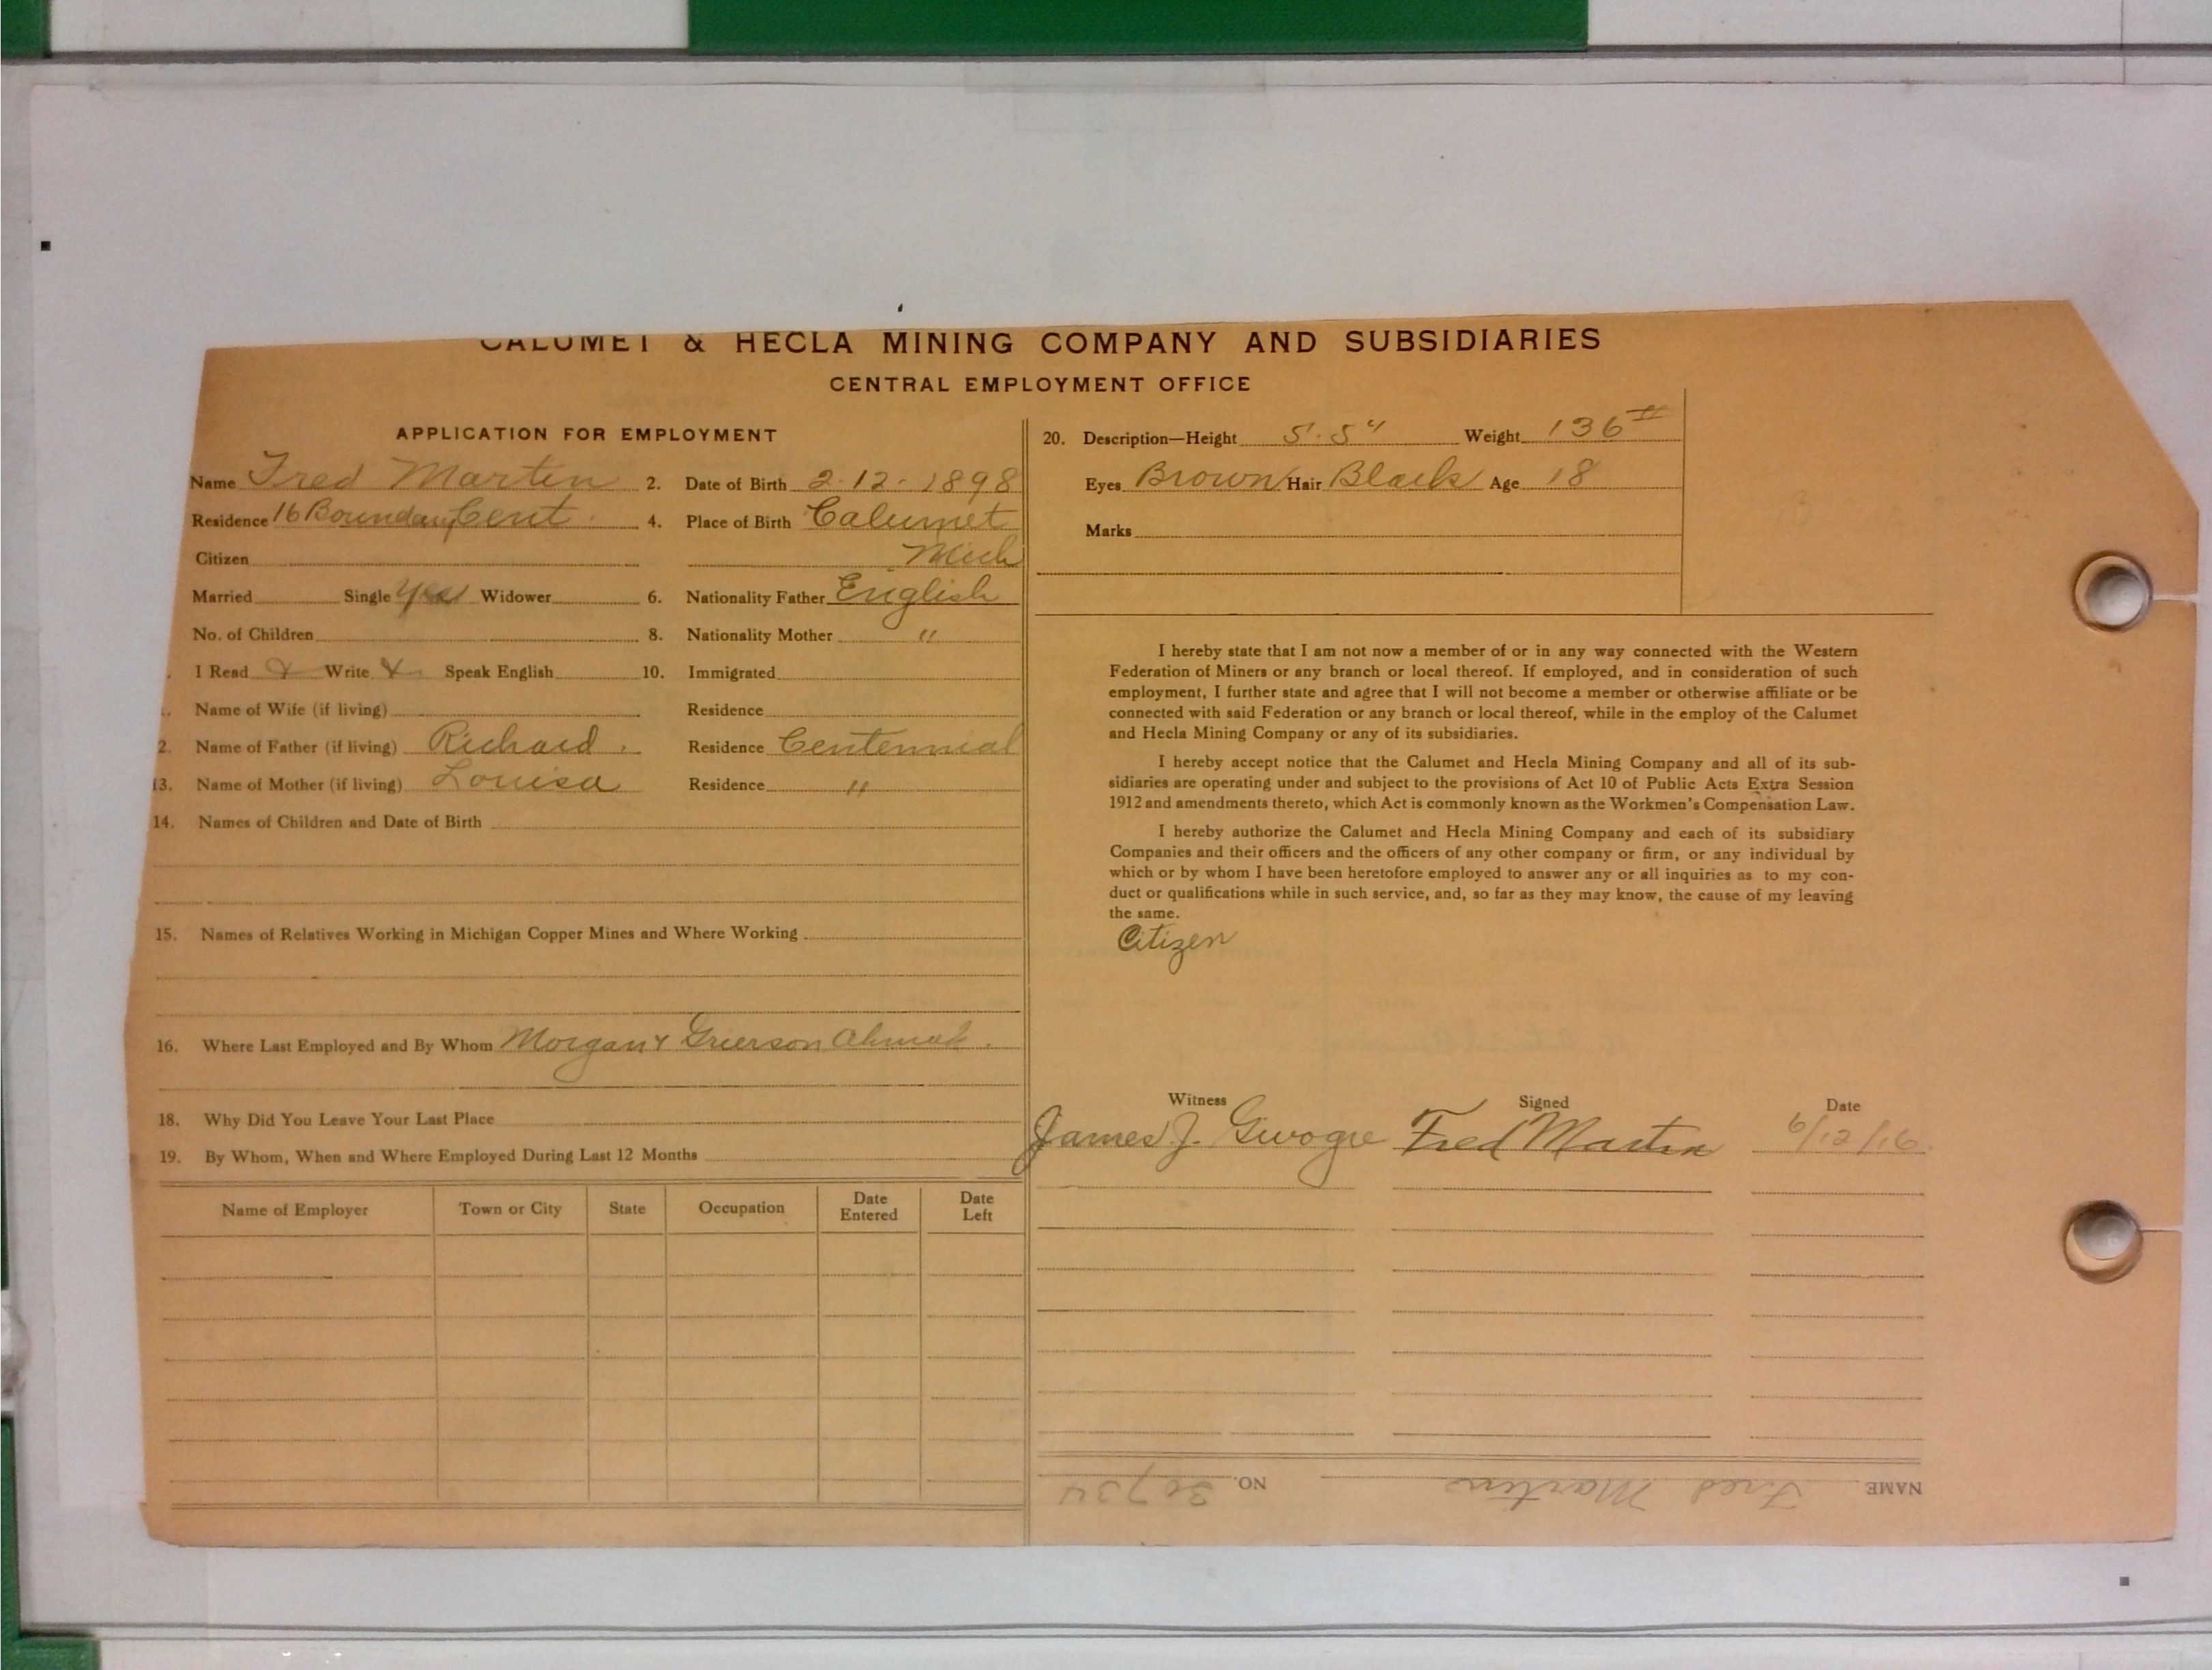 CALUMET & HECLA MINING COMPANY AND SUBSIDIARIES
CENTRAL EMPLOYMENT OFFICE
APPLICATION FOR EMPLOYMENT
Name Fred Martin 2. Date of Birth 2-12-1898
Residence 16 Boundary Cent. 4. Place of Birth Calumet
Citizen Mich
Married Single Yes Widower 6. Nationality Father English
No. of Children 8. Nationality Mother "
I Read Write Speak English 10. Immigrated
Name of Wife (if living) Residence
2. Name of Father (if living) Richard. Residence Centennial
13. Name of Mother (if living) Louisa Residence "
14. Names of Children and Date of Birth
15. Names of Relatives Working in Michigan Copper Mines and Where Working
16. Where Last Employed and By Whom Morgan & Grierson Ahmeek.
18. Why Did You Leave Your Last Place
19. By Whom, When and Where Employed During Last 12 Months
Name of Employer Town or City State Occupation Date Entered Date Left
20. Description—Height 5'.5" Weight 136#
Eyes Brown Hair Black Age 18
Marks
I hereby state that I am not now a member of or in any way connected with the Western
Federation of Miners or any branch or local thereof. If employed, and in consideration of such
employment, I further state and agree that I will not become a member or otherwise affiliate or be
connected with said Federation or any branch or local thereof, while in the employ of the Calumet
and Hecla Mining Company or any of its subsidiaries.
I hereby accept notice that the Calumet and Hecla Mining Company and all of its sub-
sidiaries are operating under and subject to the provisions of Act 10 of Public Acts Extra Session
1912 and amendments thereto, which Act is commonly known as the Workmen's Compensation Law.
I hereby authorize the Calumet and Hecla Mining Company and each of its subsidiary
Companies and their officers and the officers of any other company or firm, or any individual by
which or by whom I have been heretofore employed to answer any or all inquiries as to my con-
duct or qualifications while in such service, and, so far as they may know, the cause of my leaving
the same.
Citizen
Witness Signed Date
James J. Fred Martin 6/12/16
NAME Fred Martin NO. 30734